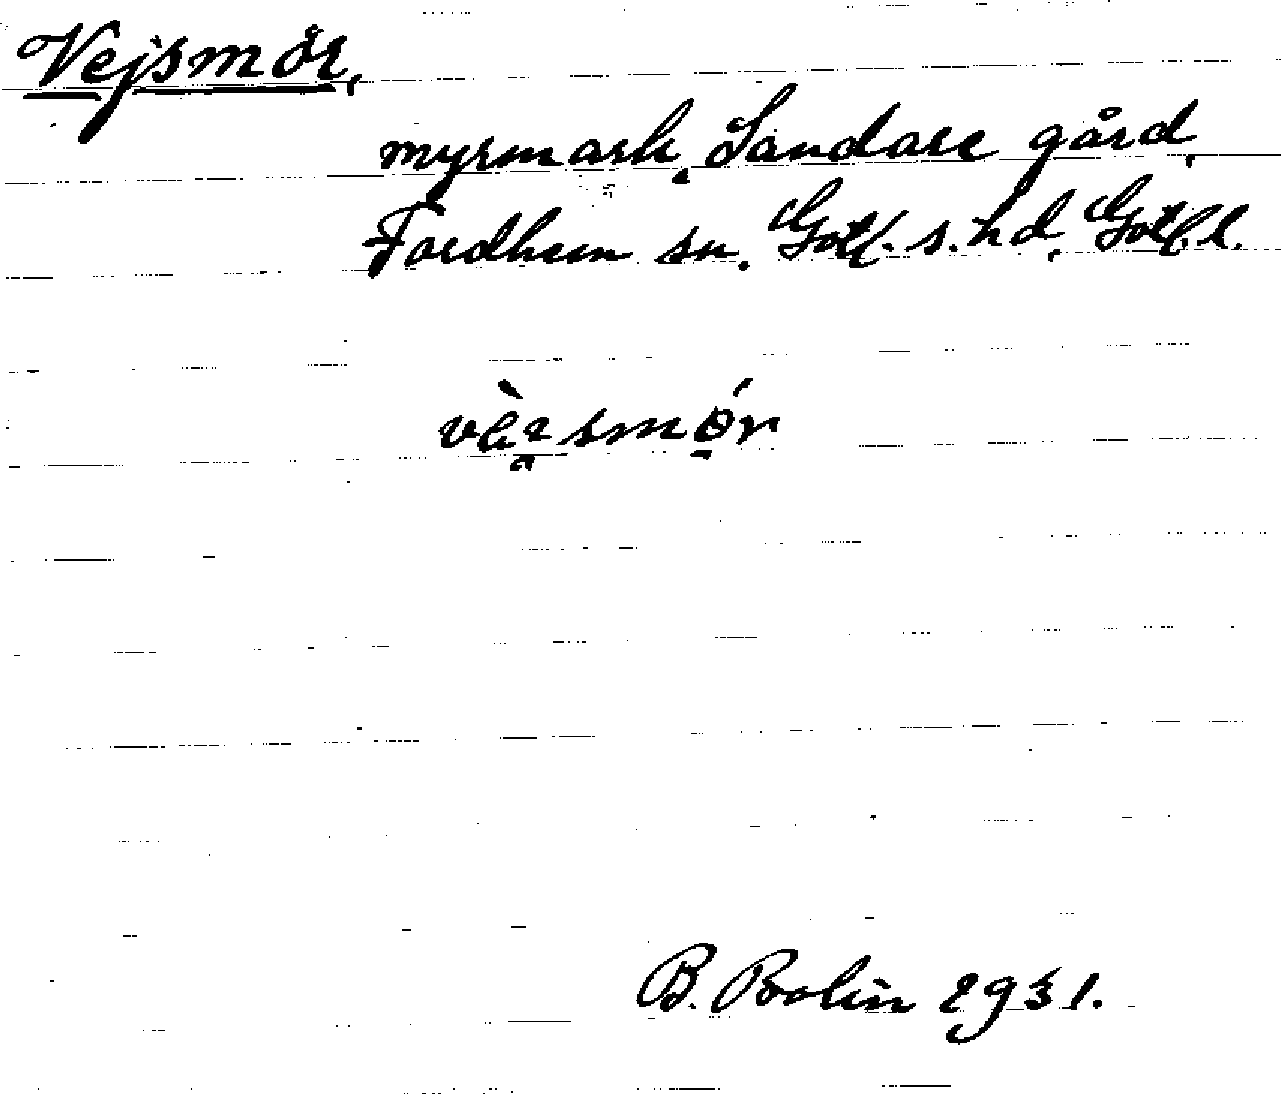 Vejsmör,
myrmark, Sandare gård,
Fardhem sn. Gotl. s. hd, Gotl. l.
B. Bolin 1931.